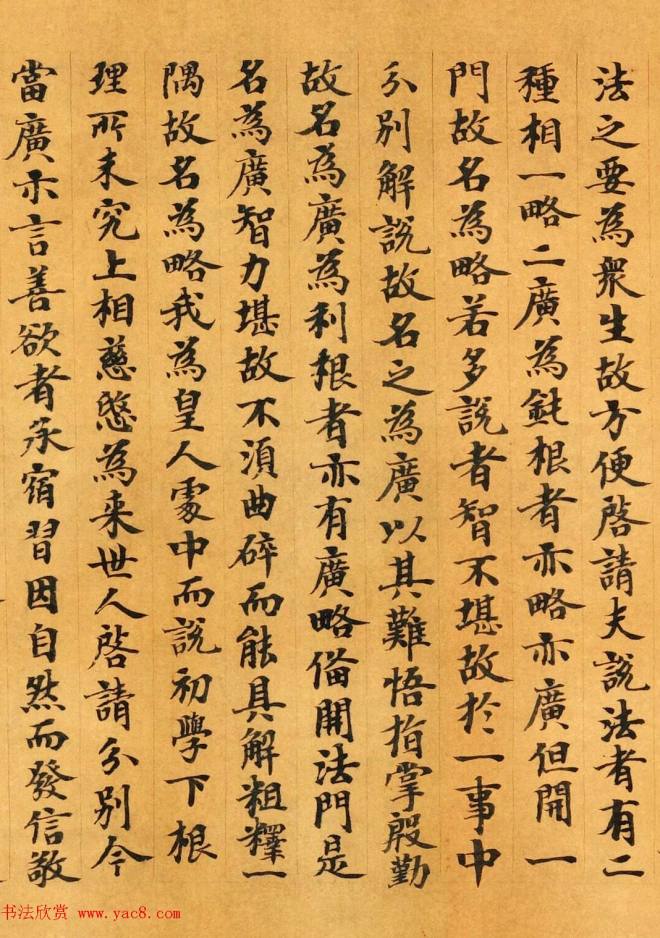 法之要為衆生故方便啓請夫說法者有二
種相一略二廣為鈍根者亦略亦廣但開一
門故名為略若多說者智不堪故於一事中
分別解說故名之為廣以其難悟指掌殷勤
故名為廣為利根者亦有廣略俻開法門是
名為廣智力堪故不湏曲碎而能具解粗釋一
隅故名為略我為皇人處中而說初學下根
理所未究上相慈愍為来世人啓請分別今
當廣示言善欲者承宿習因自然而發信敬
书法欣赏 www.yac8.com